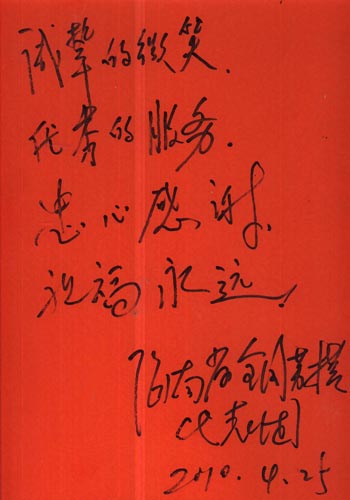 诚挚的微笑.
优秀的服务.
忠心感谢.
祝福永远!
南省全国劳模
2010.4.25